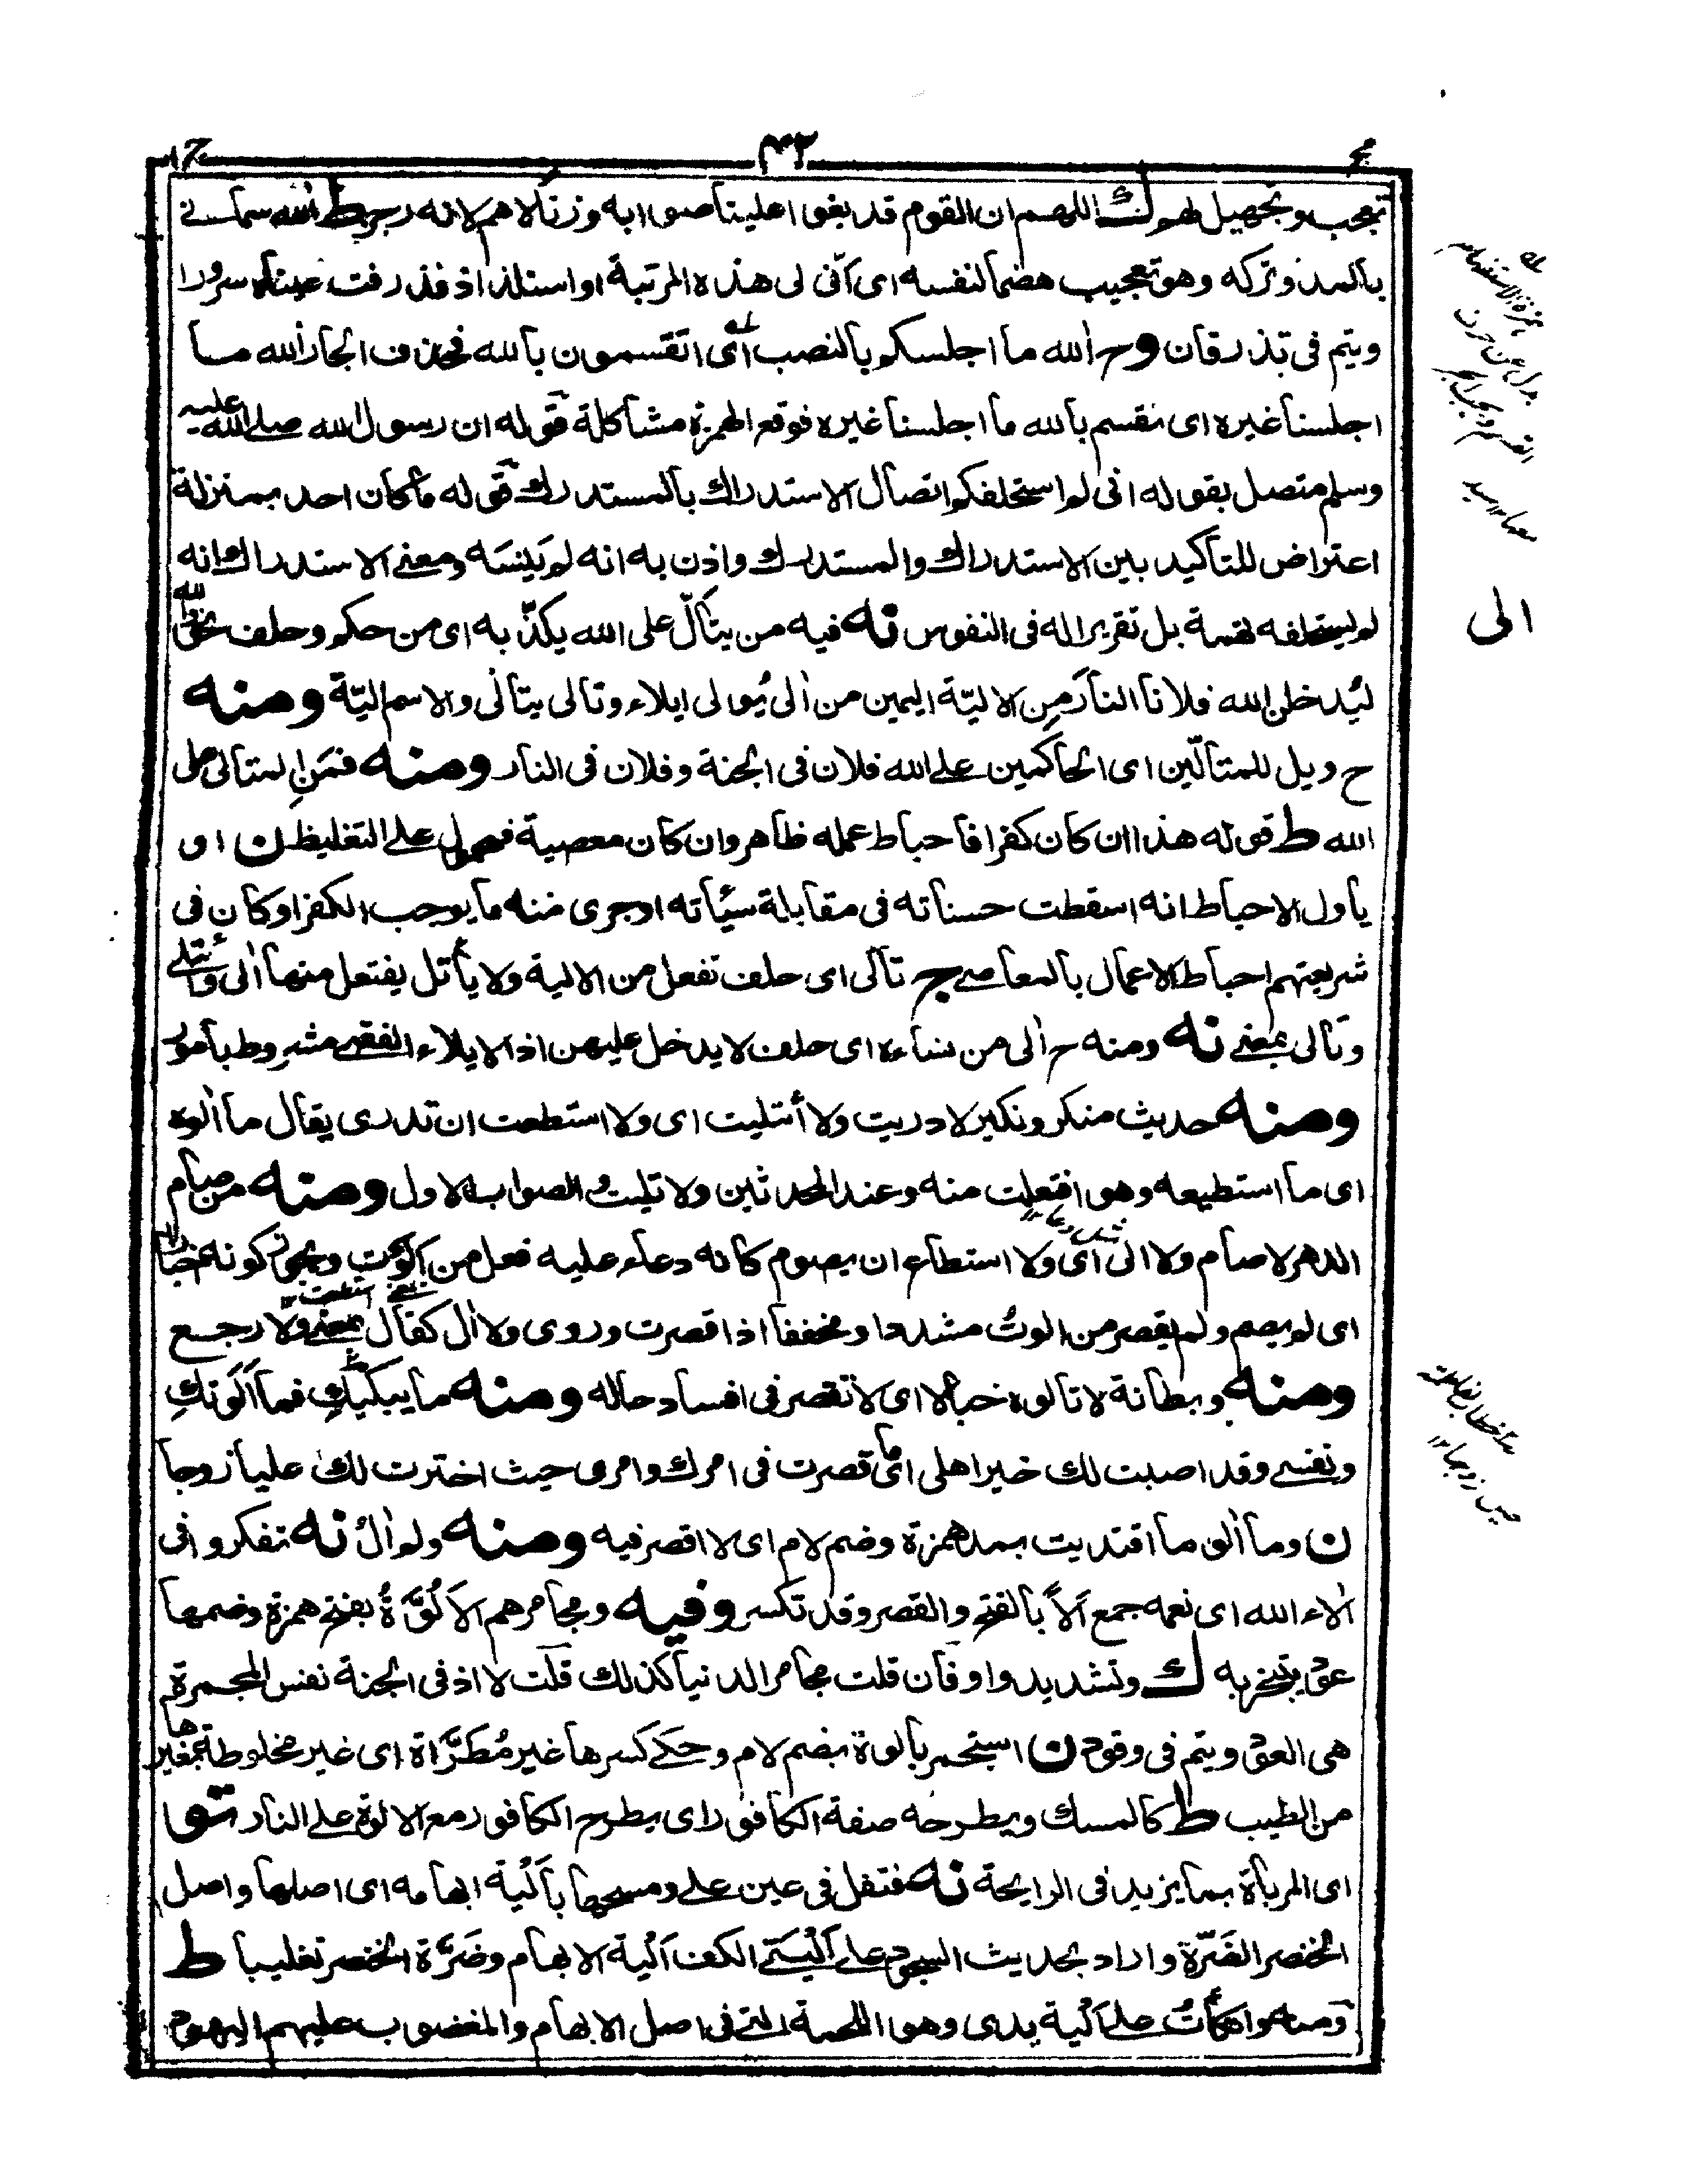 مج ٤٢ ج١
تعجب وتجهيل لهم ك اللهم ان القوم قد بغوا علينا صوابه وزنا لا هم لانه رجز ط الله سماني
بالمد وتركه وهو تعجيب هضما لنفسه اى انى لى هذه المرتبة او استلذاذ فذرفت عيناه سرورا
ويتم فى تذرفان وح الله ما اجلسكم بالنصب اى اتقسمون بالله فحذف الجار الله ما
اجلسنا غيره اى نقسم بالله ما اجلسنا غيره فوقع الهمزة مشاكلة قوله ان رسول الله صلى الله عليه
وسلم متصل بقوله انى لم استحلفكم اتصال الاستدراك بالمستدرك قوله ما كان احد بمنزلة
اعتراض للتأكيد بين الاستدراك والمستدرك واذن به انه لم ينسه ومعنى الاستدراك انه
لم يستحلفه تهمة بل تقريرا له فى النفوس نه فيه من يتألّ على الله يكذّبه اى من حكم وحلف نحو والله
ليُدخلن الله فلانا النارَ من الاليّة اليمين من اٰلى يُولى ايلاء وتالى يتالى والاسم اليّة ومنه
ح ويل للمتألّين اى الحاكمين على الله فلان فى الجنة وفلان فى النار ومنه فمَنِ المتالى على
الله ط قوله هذا ان كان كفرا فاحباط عمله ظاهر وان كان معصية فمحمول على التغليظ ن او
ياول الاحباط انه اسقطت حسناته فى مقابلة سيئاته او جرى منه ما يوجب الكفر او كان فى
شريعتهم احباط الاعمال بالمعاصى ج تالى اى حلف تفعل من الالية ولا يأتل يفتعل منها اٰلى وأتلى
وتالى بمعنى نه ومنه ح اٰلى من نساءه اى حلف لا يدخل عليهن اذ الايلاء الفقهى مشروط بامور
ومنه حديث منكر ونكير لا دريت ولا أتليت اى ولا استطعت ان تدرى يقال ما اٰلوه
اى ما استطيعه وهو افتعلت منه وعند المحدثين ولا تليت والصواب الاول ومنه من صام
الدهر لا صام ولا الى اى ولا استطاع ان يصوم كانه دعاء عليه فعل من الوت ويجوز كونه خبرا
اى لم يصم ولم يقصر من الوتُ مشددا ومخففا اذا قصرت وروى ولا اٰل كقال بمعنى ولا رجع
ومنه وبطانة لا تالوه خبالا اى لا تقصر فى افساد حاله ومنه ما يبكيكِ فما اَلَوتكِ
ونفسى وقد اصبت لك خير اهلى اى ما قصرت فى امرك وامرى حيث اخترت لك عليا زوجا
ن وما اٰلو ما اقتديت بمد همزة وضم لام اى لا اقصر فيه ومنه ولم اٰلُ نه تفكروا فى
اٰلاء الله اى نعمه جمع اَلاً بالفتح والقصر وقد تكسر وفيه ومجامرهم الاَلُوَّةُ بفتح همزة وضمها
عود يتبخر به ك وتشديد واو فان قلت مجامر الدنيا كذلك قلت لا اذ فى الجنة نفس المجمرة
هى العود ويتم فى وقود ن استجمر بالوة بضم لام وحكى كسرها غير مُطَرَّاة اى غير مخلوطة بغيرها
من الطيب ط كالمسك ويطرحه صفة الكافور اى يطرح الكافور مع الالوة على النار تو
اى المرباة بما يزيد فى الرايحة نه فتفل فى عين على ومسحها بأَليْة ابهامه اى اصلها واصل
الخنصر الضَرّة واراد بحديث السجود على اَلْيَتَى الكف اَلْية الابهام وضَرَّة الخنصر تغليبا ط
ومنه واتكأتُ على اَلْية يدى وهو اللحمة التى فى اصل الابهام والمغضوب عليهم اليهود
الى